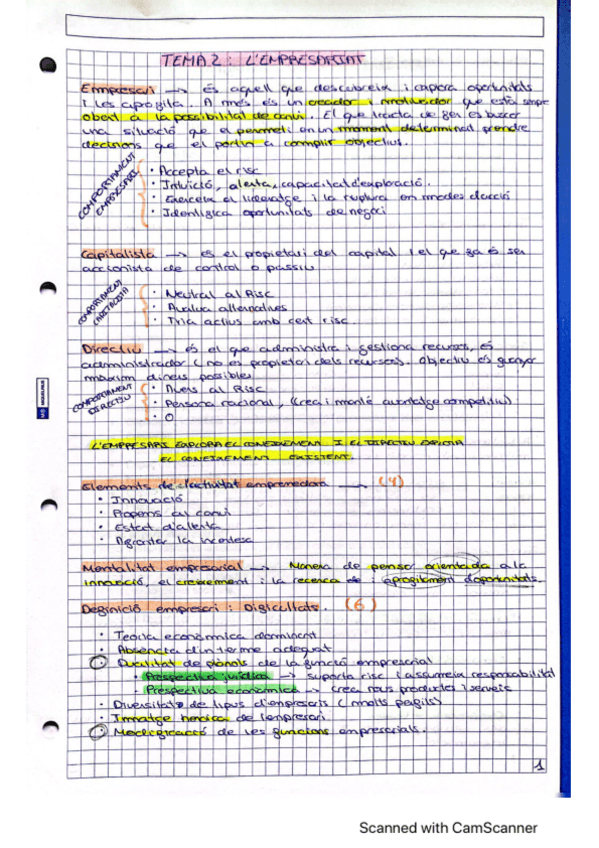 TEMA 2: L'EMPRESARIAT
Empresari → és aquell que descobreix i capera oportunitats
i les aprofita. A més és un creador i motivador que està sempre
obert a la possibilitat de canvi. El que tracta de fer és buscar
una situació que el permeti en un moment determinat prendre
decisions que el portin a complir objectius.
COMPORTAMENT EMPRESARI
· Accepta el risc
· Intuïció, alerta, capacitat d'exploració.
· Exerceix el lideratge i la ruptura en modes d'acció
· Identifica oportunitats de negoci
Capitalista → és el propietari del capital i el que fa és ser
accionista de control o passiu
COMPORTAMENT CAPITALISTA
· Neutral al Risc
· Avalua alternatives
· Tria actius amb cert risc
Directiu → és el que administra i gestiona recursos, és
administrador (no és propietari dels recursos). Objectiu és guanyar
màxim diners possibles
COMPORTAMENT DIRECTIU
· Avers al Risc
· Persona racional, (crea i manté avantatge competitiu)
· O
L'EMPRESARI EXPLORA EL CONEIXEMENT I EL DIRECTIU EXPLOTA
EL CONEIXEMENT EXISTENT.
Elements de l'activitat emprenedora → (4)
· Innovació
· Propens al canvi
· Estat d'alerta
· Afrontar la incertesa
Mentalitat empresarial → Manera de pensar orientada a la
innovació, el creixement i la recerca de i aprofitament d'oportunitats.
Definició empresari: Dificultats. (6)
· Teoria econòmica dominant
· Absència d'un terme adequat
· Dualitat de plànols de la funció empresarial
· Prespectiva jurídica → suporta risc i assumeix responsabilitat
· Prespectiva econòmica → crea nous productes i serveis
· Diversitat de tipus d'empresaris (molts perfils)
· Immatge heroica de l'empresari
· Modificació de les funcions empresarials.
1
WUOLAH
Scanned with CamScanner